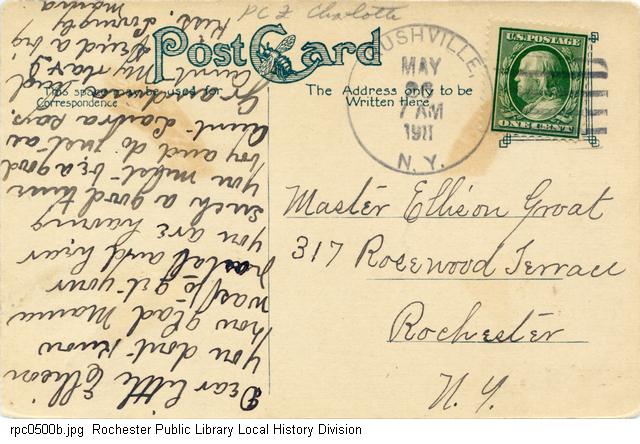 PC Z Charlotte
Post Card
This space may be used for
Correspondence
The Address only to be
Written Here
RUSHVILLE,
MAY
7 AM
1911
N. Y.
U.S. POSTAGE
ONE CENT
Master Ellison Groat
317 Rosewood Terrace
Rochester
N. Y.
Dear little Ellison
you dont know
how glad Mama
was to get your
postal and hear
you are having
such a good time
you must be a good
boy and do just as
Aunt Laura says.
Grandma and
Aunt May
send a big
kiss. Lovingly
Mama
rpc0500b.jpg Rochester Public Library Local History Division